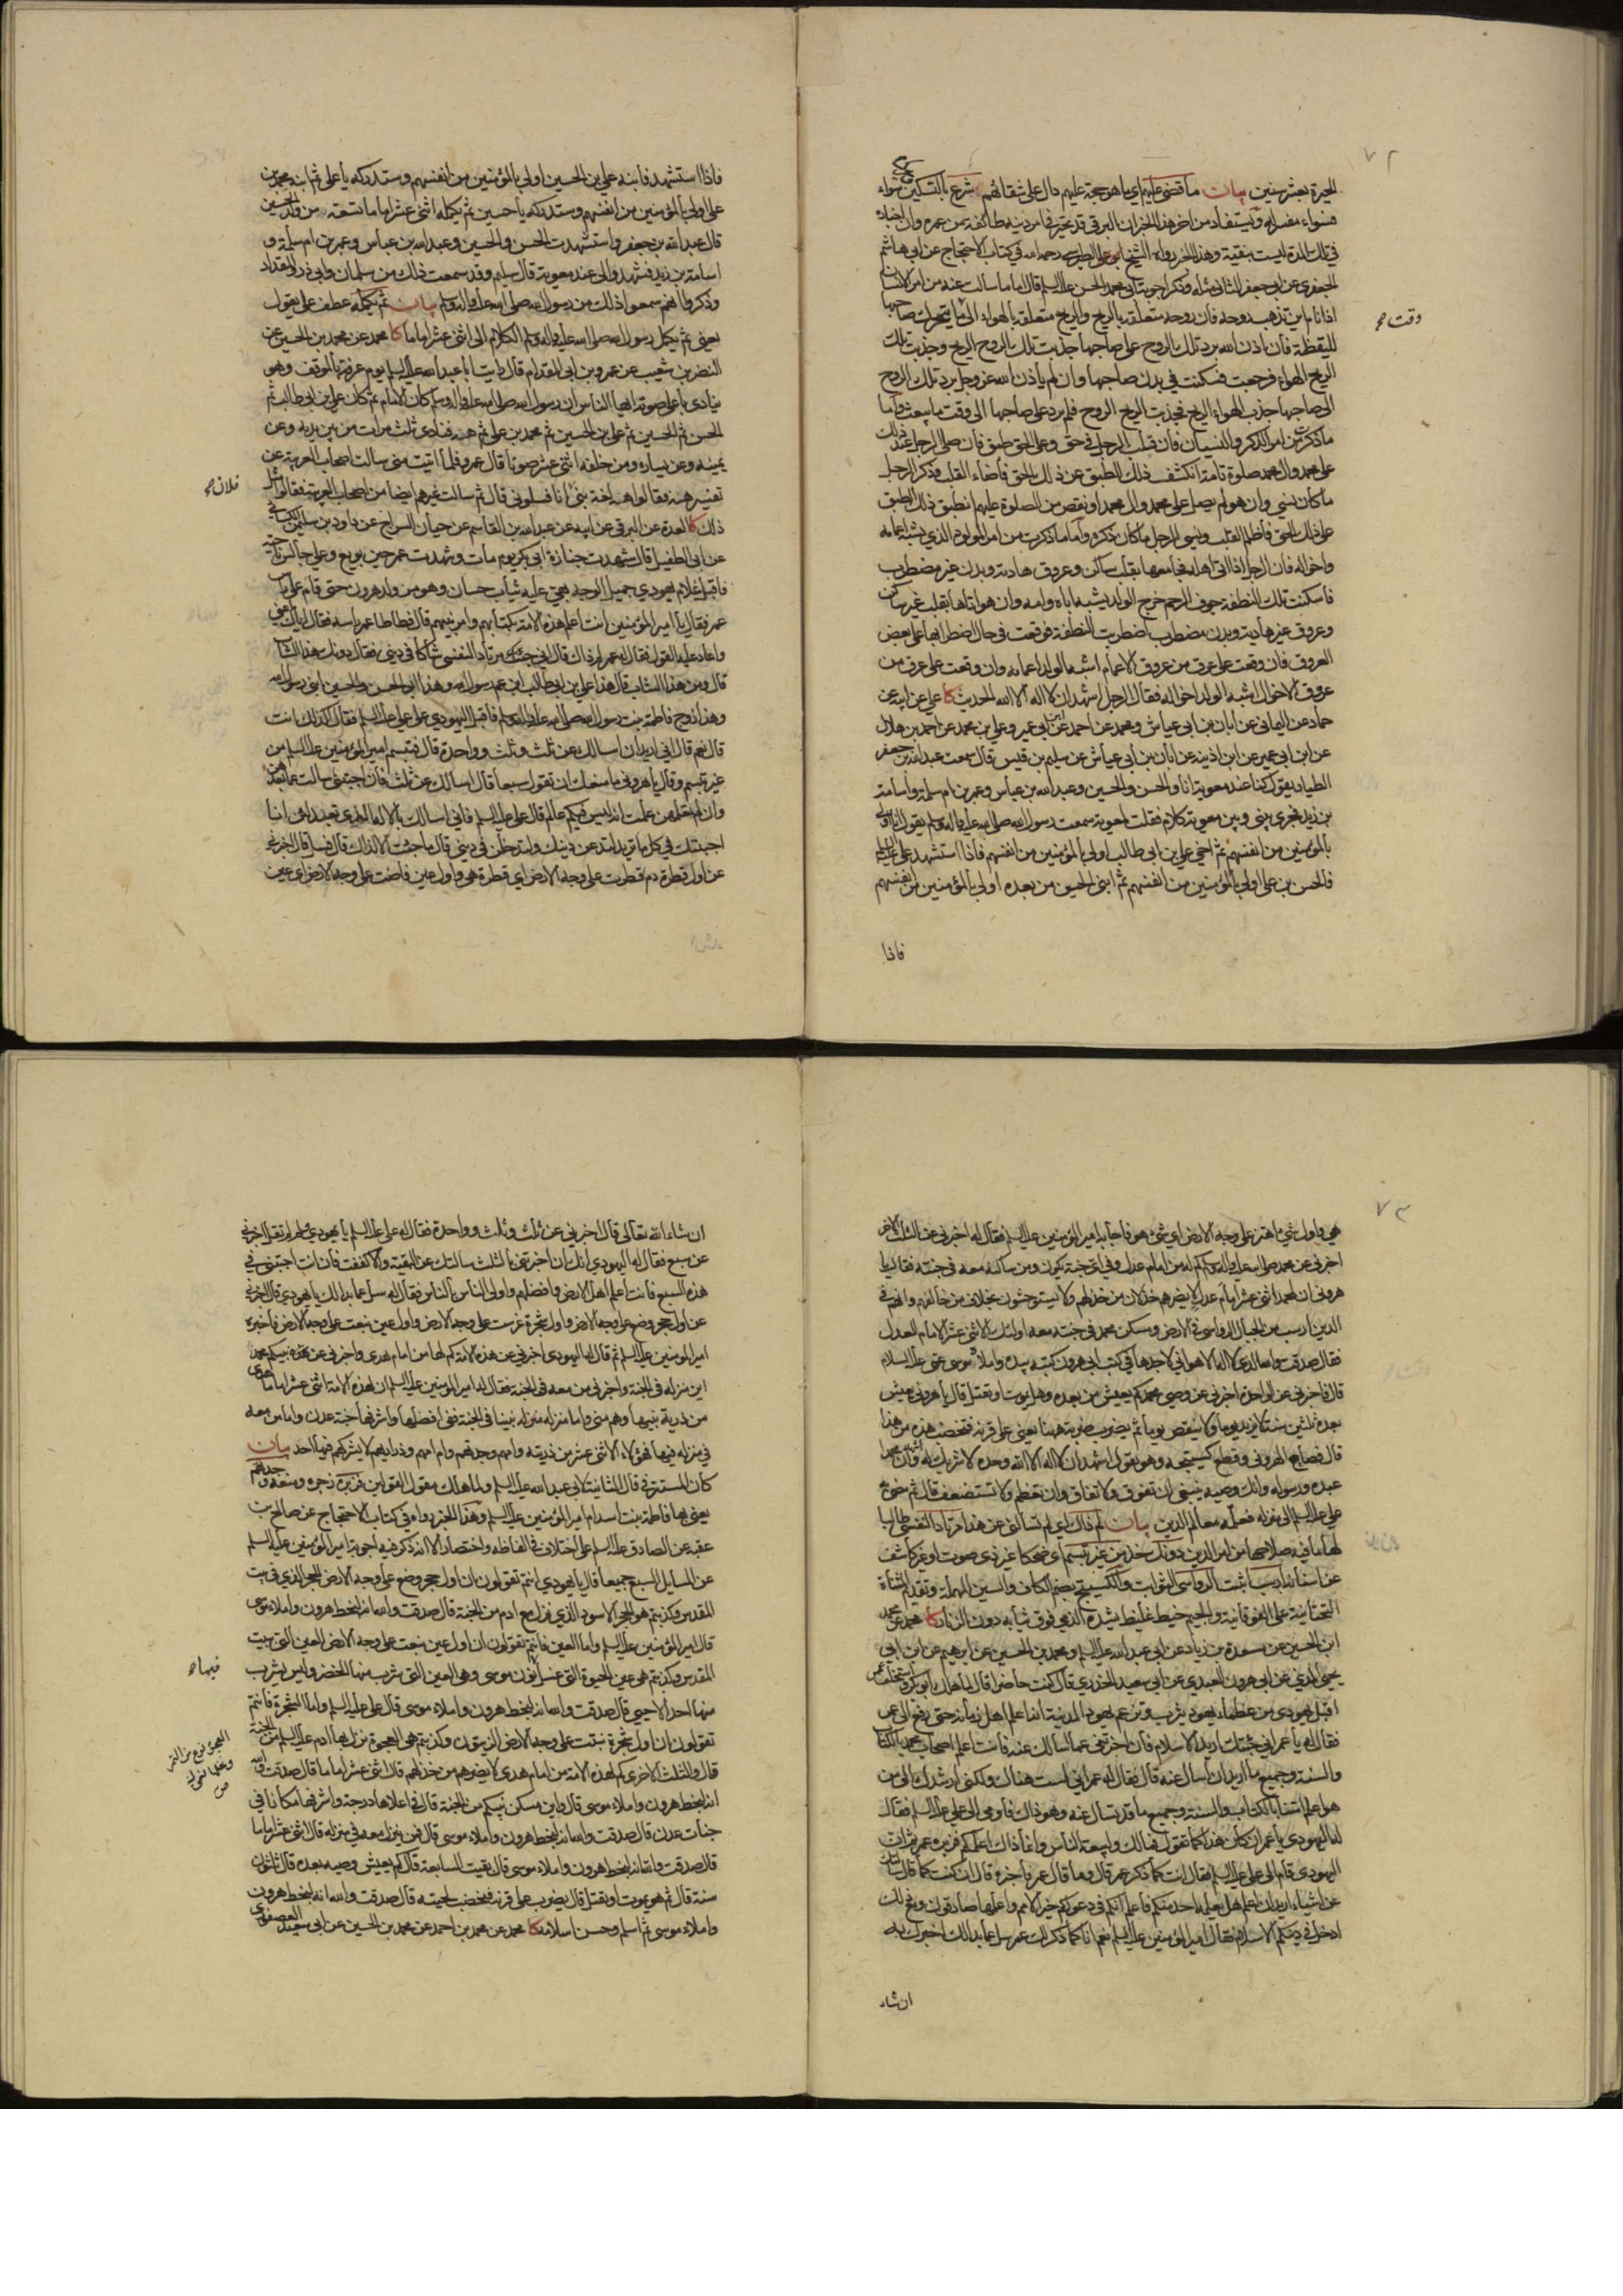 ٧٢
الحيرة بعشر سنين بيان ما قضي عليهم اي ما هو حجة عليهم دال على شقائهم شرع بالتسكين سواء
فسواء مفسر له ويستفاد من اخر هذا الخبر ان البرقي قد تحير في امر دينه طائفة من عمره وان اخباره
في تلك المدة ليست بنقية وهذا الخبر رواه الشيخ ابو علي الطبرسي رحمه الله في كتاب الاحتجاج عن ابي هاشم
الجعفري عن ابي جعفر الثاني مثله وذكر اجوبة ابي محمد الحسن عليه السلم قال اما ما سالت عنه من امر الانسان
اذا نام اين تذهب روحه فان روحه متعلقة بالريح والريح متعلقة بالهواء الى ما يتحرك صاحبها
وقت صح
لليقظة فان اذن الله برد تلك الروح على صاحبها جذبت تلك الروح الريح وجذبت تلك
الريح الهواء فرجعت فسكنت في بدن صاحبها وان لم ياذن الله عز وجل برد تلك الروح
الى صاحبها جذب الهواء الريح فجذبت الريح الروح فلم ترد على صاحبها الى وقت ما يبعث واما
ما ذكرت من امر الذكر والنسيان فان قلب الرجل في حق وعلى الحق طبق فان صلى الرجل عند ذلك
على محمد وال محمد صلوة تامة انكشف ذلك الطبق عن ذلك الحق فاضاء القلب وذكر الرجل
ما كان نسي وان هو لم يصل على محمد وال محمد او نقص من الصلوة عليهم انطبق ذلك الطبق
على ذلك الحق فاظلم القلب ونسي الرجل ما كان ذكره واما ما ذكرت من امر المولود الذي يشبه اعمامه
واخواله فان الرجل اذا اتى اهله فجامعها بقلب ساكن وعروق هادئة وبدن غير مضطرب
فاسكنت تلك النطفة جوف الرحم خرج الولد يشبه اباه وامه وان هو اتاها بقلب غير ساكن
وعروق غير هادئة وبدن مضطرب اضطربت النطفة فوقعت في حال اضطرابها على بعض
العروق فان وقعت على عرق من عروق الاعمام اشبه الولد اعمامه وان وقعت على عرق من
عروق الاخوال اشبه الولد اخواله فقال الرجل اشهد ان لا اله الا الله الحديث كا علي عن ابيه عن
حماد عن اليماني عن ابان بن ابي عياش ومحمد عن احمد عن ابن ابي عمير وعلي بن محمد عن احمد بن هلال
عن ابن ابي عمير عن ابن اذينة عن ابان بن ابي عياش عن سليم بن قيس قال سمعت عبد الله بن جعفر
الطيار يقول كنا عند معوية انا والحسن والحسين وعبد الله بن عباس وعمر بن ام سلمة واسامة
بن زيد فجرى بيني وبين معوية كلام فقلت لمعوية سمعت رسول الله صلى الله عليه واله وسلم يقول انا اولى
بالمؤمنين من انفسهم ثم اخي علي بن ابي طالب اولى بالمؤمنين من انفسهم فاذا استشهد علي عليه السلم
فالحسن بن علي اولى بالمؤمنين من انفسهم ثم ابني الحسين من بعده اولى بالمؤمنين من انفسهم
فاذا
فاذا استشهد فابنه علي بن الحسين اولى بالمؤمنين من انفسهم وستدركه يا علي ثم ابنه محمد بن
علي اولى بالمؤمنين من انفسهم وستدركه يا حسين ثم يكمله اثني عشر اماما تسعة من ولد الحسين
قال عبد الله بن جعفر واستشهدت الحسن والحسين وعبد الله بن عباس وعمر بن ام سلمة و
اسامة بن زيد فشهدوا لي عند معوية قال سليم وقد سمعت ذلك من سلمان وابي ذر والمقداد
وذكروا انهم سمعوا ذلك من رسول الله صلى الله عليه واله وسلم بيان ثم يكمله عطف على يقول
يعني ثم يكمل رسول الله صلى الله عليه واله وسلم الكلام الى اثني عشر اماما كا محمد عن محمد بن الحسين عن
النضر بن شعيب عن عمرو بن ابي المقدام قال رايت ابا عبد الله عليه السلم يوم عرفة بالموقف وهو
ينادي باعلى صوته ايها الناس ان رسول الله صلى الله عليه واله وسلم كان الامام ثم كان علي بن ابي طالب ثم
الحسن ثم الحسين ثم علي بن الحسين ثم محمد بن علي ثم هه فنادى ثلث مرات من بين يديه وعن
يمينه وعن يساره ومن خلفه اثني عشر صوتا قال عمرو فلما اتيت منى سالت اصحاب العربية عن
تفسير هه فقالوا هه لغة بني انا فسلوني قال ثم سالت غيرهم ايضا من اصحاب العربية فقالوا مثل
فلان صح
ذلك كا العدة عن البرقي عن ابيه عن عبد الله بن القاسم عن حيان السراج عن داود بن سليمن الكسائي
عن ابي الطفيل قال شهدت جنازة ابي بكر يوم مات وشهدت عمر حين بويع وعلي جالس ناحية
فاقبل غلام يهودي جميل الوجه بهي عليه ثياب حسان وهو من ولد هرون حتى قام على راس
عمر فقال يا امير المؤمنين انت اعلم هذه الامة بكتابهم وامر نبيهم قال فطاطا عمر راسه فقال اياك اعني
واعاد عليه القول فقال له عمر لم ذاك قال اني جئتك مرتادا لنفسي شاكا في ديني فقال دونك هذا الشاب
قال ومن هذا الشاب قال هذا علي بن ابي طالب ابن عم رسول الله وهذا ابو الحسن والحسين ابني رسول الله
وهذا زوج فاطمة بنت رسول الله صلى الله عليه واله وسلم فاقبل اليهودي على علي عليه السلم فقال اكذلك انت
قال نعم قال اني اريد ان اسالك عن ثلث وثلث وواحدة قال فتبسم امير المؤمنين عليه السلم من
غير تبسم وقال يا هروني ما منعك ان تقول سبعا قال اسالك عن ثلث فان اجبتني سالت عما بعدهن
وان لم تعلمهن علمت انه ليس فيكم عالم قال علي عليه السلم فاني اسالك بالاله الذي تعبده لئن انا
اجبتك في كل ما تريد لتدعن دينك ولتدخلن في ديني قال ما جئت الا لذاك قال فسل قال اخبرني
عن اول قطرة دم قطرت على وجه الارض اي قطرة هي واول عين فاضت على وجه الارض اي عين
٧٣
هي واول شيء اهتز على وجه الارض اي شيء هو فاجابه امير المؤمنين عليه السلم فقال له اخبرني عن الثلث الاخر
اخبرني عن محمد صلى الله عليه واله وسلم كم له من امام عدل وفي اي جنة يكون ومن ساكنه معه في جنته فقال يا
هروني ان لمحمد اثني عشر امام عدل لا يضرهم خذلان من خذلهم ولا يستوحشون بخلاف من خالفهم وانهم في
الدين ارسب من الجبال الرواسي في الارض ومسكن محمد في جنته معه اولئك الاثني عشر الامام العدل
فقال صدقت والله الذي لا اله الا هو اني لاجدها في كتب ابي هرون كتبه بيده واملاه موسى عمي عليه السلام
قال فاخبرني عن الواحدة اخبرني عن وصي محمد كم يعيش من بعده وهل يموت او يقتل قال يا هروني يعيش
بعده ثلثين سنة لا يزيد يوما ولا ينقص يوما ثم يضرب ضربة ههنا يعني على قرنه فتخضب هذه من هذا
قال فصاح الهروني وقطع كستيجه وهو يقول اشهد ان لا اله الا الله وحده لا شريك له واشهد ان محمدا
عبده ورسوله وانك وصيه ينبغي ان تفوق ولا تفاق وان تعظم ولا تستضعف قال ثم مضى به
علي عليه السلم الى منزله فعلمه معالم الدين بيان لم ذاك اي لم تسالني عن هذا مرتادا لنفسي طالبا
لها ما فيه صلاحها من امر الدين دونك خذ من غير تبسم اي ضحكا غير ذي صوت او غير كاشف
عن اسنانه ارسب اثبت الرواسي الثوابت والكستيج بضم الكاف والسين المهملة وتقديم المثناة
التحتانية على الفوقانية والجيم خيط غليظ يشده الذمي فوق ثيابه دون الزنار كا محمد عن محمد
ابن الحسين عن مسعدة بن زياد عن ابي عبد الله عليه السلم ومحمد بن الحسين عن ابرهيم عن ابن ابي
يحيى المديني عن ابي هرون العبدي عن ابي سعيد الخدري قال كنت حاضرا لما هلك ابو بكر واستخلف عمر
اقبل يهودي من عظماء يهود يثرب وتزعم يهود المدينة انه اعلم اهل زمانه حتى رفع الى عمر
فقال له يا عمر اني جئتك اريد الاسلام فان اخبرتني عما اسالك عنه فانت اعلم اصحاب محمد بالكتاب
والسنة وجميع ما اريد ان اسال عنه قال فقال له عمر اني لست هناك ولكني ارشدك الى من
هو اعلم امتنا بالكتاب والسنة وجميع ما قد تسال عنه وهو ذاك فاومى الى علي عليه السلم فقال
له اليهودي يا عمر ان كان هذا كما تقول فمالك ولبيعة الناس وانما ذاك اعلمكم فزبره عمر ثم ان
اليهودي قام الى علي عليه السلم فقال انت كما ذكر عمر قال وما قال عمر فاخبره قال ان كنت كما قال سالتك
عن اشياء اريد ان اعلم هل يعلمه احد منكم فاعلم انكم في دعوتكم خير الامم واعلمها صادقون ومع ذلك
ادخل في دينكم الاسلام فقال امير المؤمنين عليه السلم نعم انا كما ذكر لك عمر سل عما بدا لك اخبرك به
ان شاء
ان شاء الله تعالى قال اخبرني عن ثلث وثلث وواحدة فقال له علي عليه السلم يا يهودي ولم لم تقل اخبرني
عن سبع فقال له اليهودي انك ان اخبرتني بالثلث سالتك عن البقية والا كففت فان انت اجبتني في
هذه السبع فانت اعلم اهل الارض وافضلهم واولى الناس بالناس فقال له سل عما بدا لك يا يهودي قال اخبرني
عن اول حجر وضع على وجه الارض واول شجرة غرست على وجه الارض واول عين نبعت على وجه الارض فاخبره
امير المؤمنين عليه السلم ثم قال له اليهودي اخبرني عن هذه الامة كم لها من امام هدى واخبرني عن نبيكم محمد
اين منزله في الجنة واخبرني من معه في الجنة فقال له امير المؤمنين عليه السلم ان لهذه الامة اثني عشر امام هدى
من ذرية نبيها وهم مني واما منزل نبينا في الجنة ففي افضلها واشرفها جنة عدن واما من معه
في منزله فيها فهؤلاء الاثني عشر من ذريته وامهم وجدتهم وام امهم وذراريهم لا يشركهم فيها احد بيان
كان المستتر في قال الثانية لابي عبد الله عليه السلم ولما هلك مقول القولين فزبره زجره ومنعه وجدتهم
يعني بها فاطمة بنت اسد ام امير المؤمنين عليه السلم وهذا الخبر رواه في كتاب الاحتجاج عن صالح بن
عقبة عن الصادق عليه السلم على اختلاف في الفاظه واختصار الا انه ذكر فيه اجوبة امير المؤمنين عليه السلم
عن المسايل السبع جميعا قال يا يهودي انتم تقولون ان اول حجر وضع على وجه الارض الحجر الذي في بيت
المقدس وكذبتم هو الحجر الاسود الذي نزل مع ادم من الجنة قال صدقت والله انه لبخط هرون واملاء موسى
قال امير المؤمنين عليه السلم واما العين فانتم تقولون ان اول عين نبعت على وجه الارض العين التي ببيت
المقدس وكذبتم هي عين الحيوة التي غسل نون موسى وهي العين التي شرب منها الخضر وليس يشرب
فيها صح
منها احد الا حيي قال صدقت والله انه لبخط هرون واملاء موسى قال علي عليه السلم واما الشجرة فانتم
تقولون ان اول شجرة نبتت على وجه الارض الزيتون وكذبتم هي العجوة نزل بها ادم عليه السلم من الجنة
العجوة نوع من التمر
قال والثلث الاخرى كم لهذه الامة من امام هدى لا يضرهم من خذلهم قال اثني عشر اماما قال صدقت والله
انه لبخط هرون واملاء موسى قال واين مسكن نبيكم من الجنة قال في اعلاها درجة واشرفها مكانا في
جنات عدن قال صدقت والله انه لبخط هرون واملاء موسى قال فمن ينزل معه في منزله قال اثني عشر اماما
قال صدقت والله انه لبخط هرون واملاء موسى قال بقيت السابعة قال كم يعيش وصيه بعده قال ثلثون
سنة قال ثم هو يموت او يقتل قال يضرب على قرنه فتخضب لحيته قال صدقت والله انه لبخط هرون
واملاء موسى ثم اسلم وحسن اسلامه كا محمد عن محمد بن احمد عن محمد بن الحسين عن ابي سعيد العصفوري